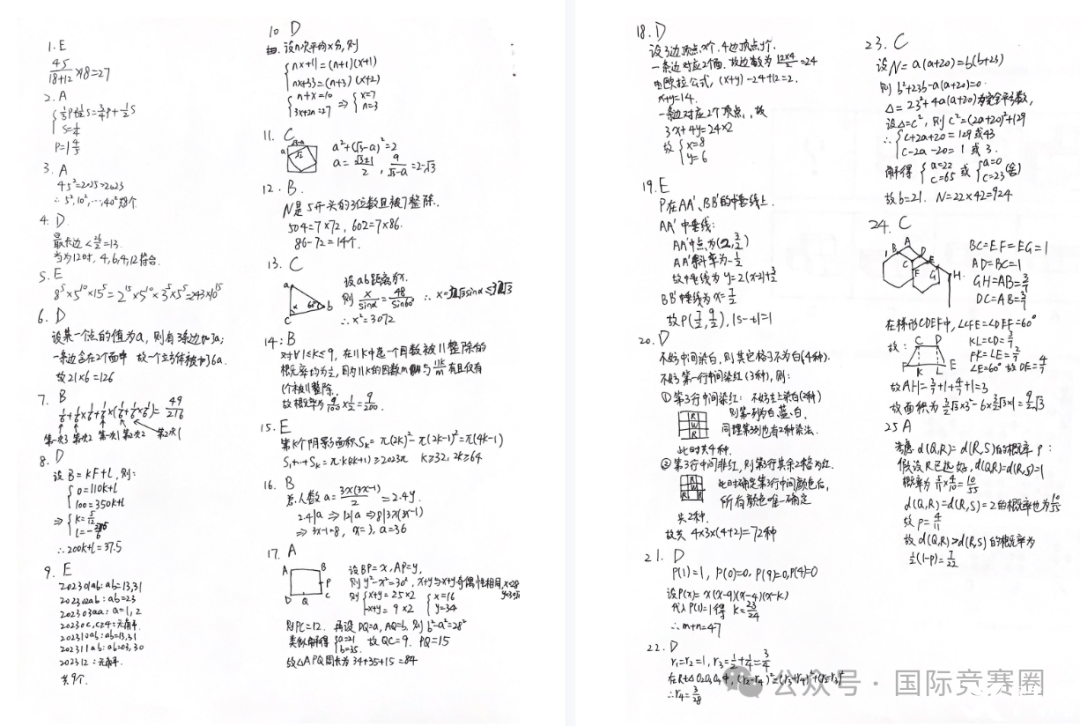 1. E
45/(18+12) ×18=27
2. A
{ 1/3P+1/2S=3/4P+1/2S
S=
P=1 4/5
3. A
45²=2025>2023
∴5²,10²,…,40²8个
4. D
最长边<26/2=13.
当为12时, 4,6,4,12符合.
5. E
8⁵×5¹⁰×15⁵=2¹⁵×5¹⁰×3⁵×5⁵=243×10¹⁵
6. D
设某一个点的值为a, 则有3条边加3a;
一条边含在2个面中, 故一个立方体被加6a.
故21×6=126
7. B
1/6+1/6×1/6+1/6×(1/6+1/6×1/6)=49/216
第一次3 第一次2 第一次1 第二次2 第二次1
8. D
设B=kF+l, 则:
{ 0=110k+l
100=350k+l
⇒{ k=5/12
∴200k+l=37.5
9. E
202301ab: ab=13,31
202302ab: ab=23
202303aa: a=1,2
20230c, c≥4:无
202310ab: ab=13,31
202311ab: ab=03,30
202312:无
共9个.
10 D
设n次平均x分, 则
{ nx+11=(n+1)(x+1)
nx+33=(n+3)(x+2)
{ n+x=10
3x+2n=27 ⇒ { x=7
n=3
11. C
a²+(√3-a)²=2
a=(√3±1)/2, a/(√3-a)=2-√3
12. B.
N是5开头的3位数且被7整除.
504=7×72, 602=7×86.
86-72=14个.
13. C
a
b
c
60°
设ab距离为x.
则 x/sinα=48/sin60
∴x=32√3sinα≤32√3
∴x²=3072
14: B
对∀1≤k≤9, 在11k中选一个因数被11整除的
概率均为1/2, 因为11k的因数m与11k/m有且仅有
1个被11整除.
故概率为9/100×1/2=9/200.
15. E
第k个阴影面积Sₖ=π(2k)²-π(2k-1)²=π(4k-1)
S₁+…+Sₖ=π·k(2k+1)≥2023π k≥32, 2k≥64
16. B
总人数a=3x(3x-1)/2=2.4y.
2.4|a⇒12|a⇒8|3x(3x-1)
⇒3x-1=8, x=3, a=36
17. A
A
B
P
C
Q
D
设BP=x, AP=y,
则y²-x²=30², x+y与x-y奇偶性相同,
则{ x+y=25×2
-x+y=9×2
{ x=16
y=34
则PC=12. 再设DQ=a, AQ=b, 则b²-a²=28²
类似解得{ a=21
b=35.
故QC=9. PQ=15
故△APQ周长为34+35+15=84
18. D
设3边顶点x个, 4边顶点y个.
一条边对应2个面, 故边数为12×4/2=24
由欧拉公式, (x+y)-24+12=2.
x+y=14.
一条边对应2个顶点, 故
3x+4y=24×2
故{ x=8
y=6
19. E
P在AA'、BB'的中垂线上.
AA'中垂线:
AA'中点为(2,3/2)
AA'斜率为-1/2
故中垂线为y=2(x-2)+3/2
BB'中垂线为x=7/2
故P(7/2,9/2), |s-t|=1
20. D
不妨中间染白, 则其它格子不为白(4种).
不妨第一行中间染红(3种), 则:
①第3行中间染红: 不妨左上染白(2种)
则第一列为白、蓝、白,
同理第3列也有2种染法.
此时共4种.
②第3行中间非红, 则第3行其余2格为红.
此时确定第3行中间颜色后,
所有颜色唯一确定
共2种.
故共4×3×(4+2)=72种
21. D
P(1)=1, P(0)=0, P(9)=0, P(4)=0
设P(x)=x(x-9)(x-4)(x-k)
代入P(1)=1得 k=23/24
∴m+n=47
22. D
r₁=r₂=1, r₃=1/2+1/4=3/4
∴r₄=3/28
23. C
设N=a(a+20)=b(b+23)
则b²+23b-a(a+20)=0
Δ=23²+4a(a+20)为完全平方数,
设Δ=c², 则c²=(2a+20)²+129
∴{ c+2a+20=129或43
c-2a-20=1或3.
解得{ a=22
c=65 或{ a=0
c=23(舍)
故b=21. N=22×42=924
24. C
BC=EF=EG=1
AD=BC=1
GH=AB=3/7
DC=AB=3/7
在梯形CDEF中, ∠CFE=∠DEF=60°
故:
KL=CD=3/7
FK=LE=2/7
∠E=60° 故DE=4/7
故AH=3/7+1+4/7+1=3
故面积为3/2√3×3²-6×3/2√3×1=9/2√3
25 A
考虑d(Q,R)=d(R,S)的概率P:
假设R已选好, d(Q,R)=d(R,S)=1
概率为5/11×4/10=10/55
d(Q,R)=d(R,S)=2的概率也为10/55
故P=4/11
故d(Q,R)>d(R,S)的概率为
1/2(1-P)=7/22
公众号·国际竞赛圈